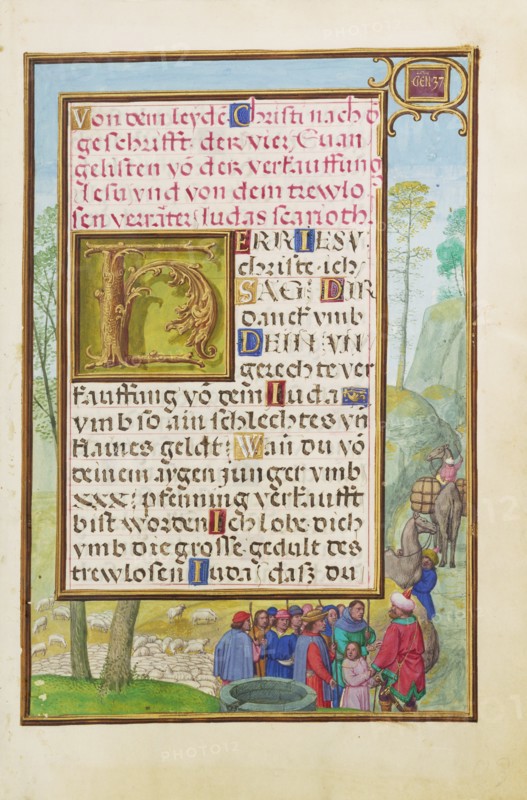 GEN·37
Von dem leydē Christi nach d̄
geschrifft· der vier Euan
gelisten vō der verkauffung
Jesu vnd von dem trewlo
sen verräter Judas scarioth.
HERR IESV
christe· ich
SAG DIR
danck vmb
DEIN VN
gerechte ver
kauffung vō dem Juda
vmb so ain schlechtes vn
klaines geldt: Wañ du vō
deinem aygen junger vmb
xxx: pfenning verkaufft
bist worden Ich lobe dich
vmb die grosse gedult des
trewlosen Juda daß du